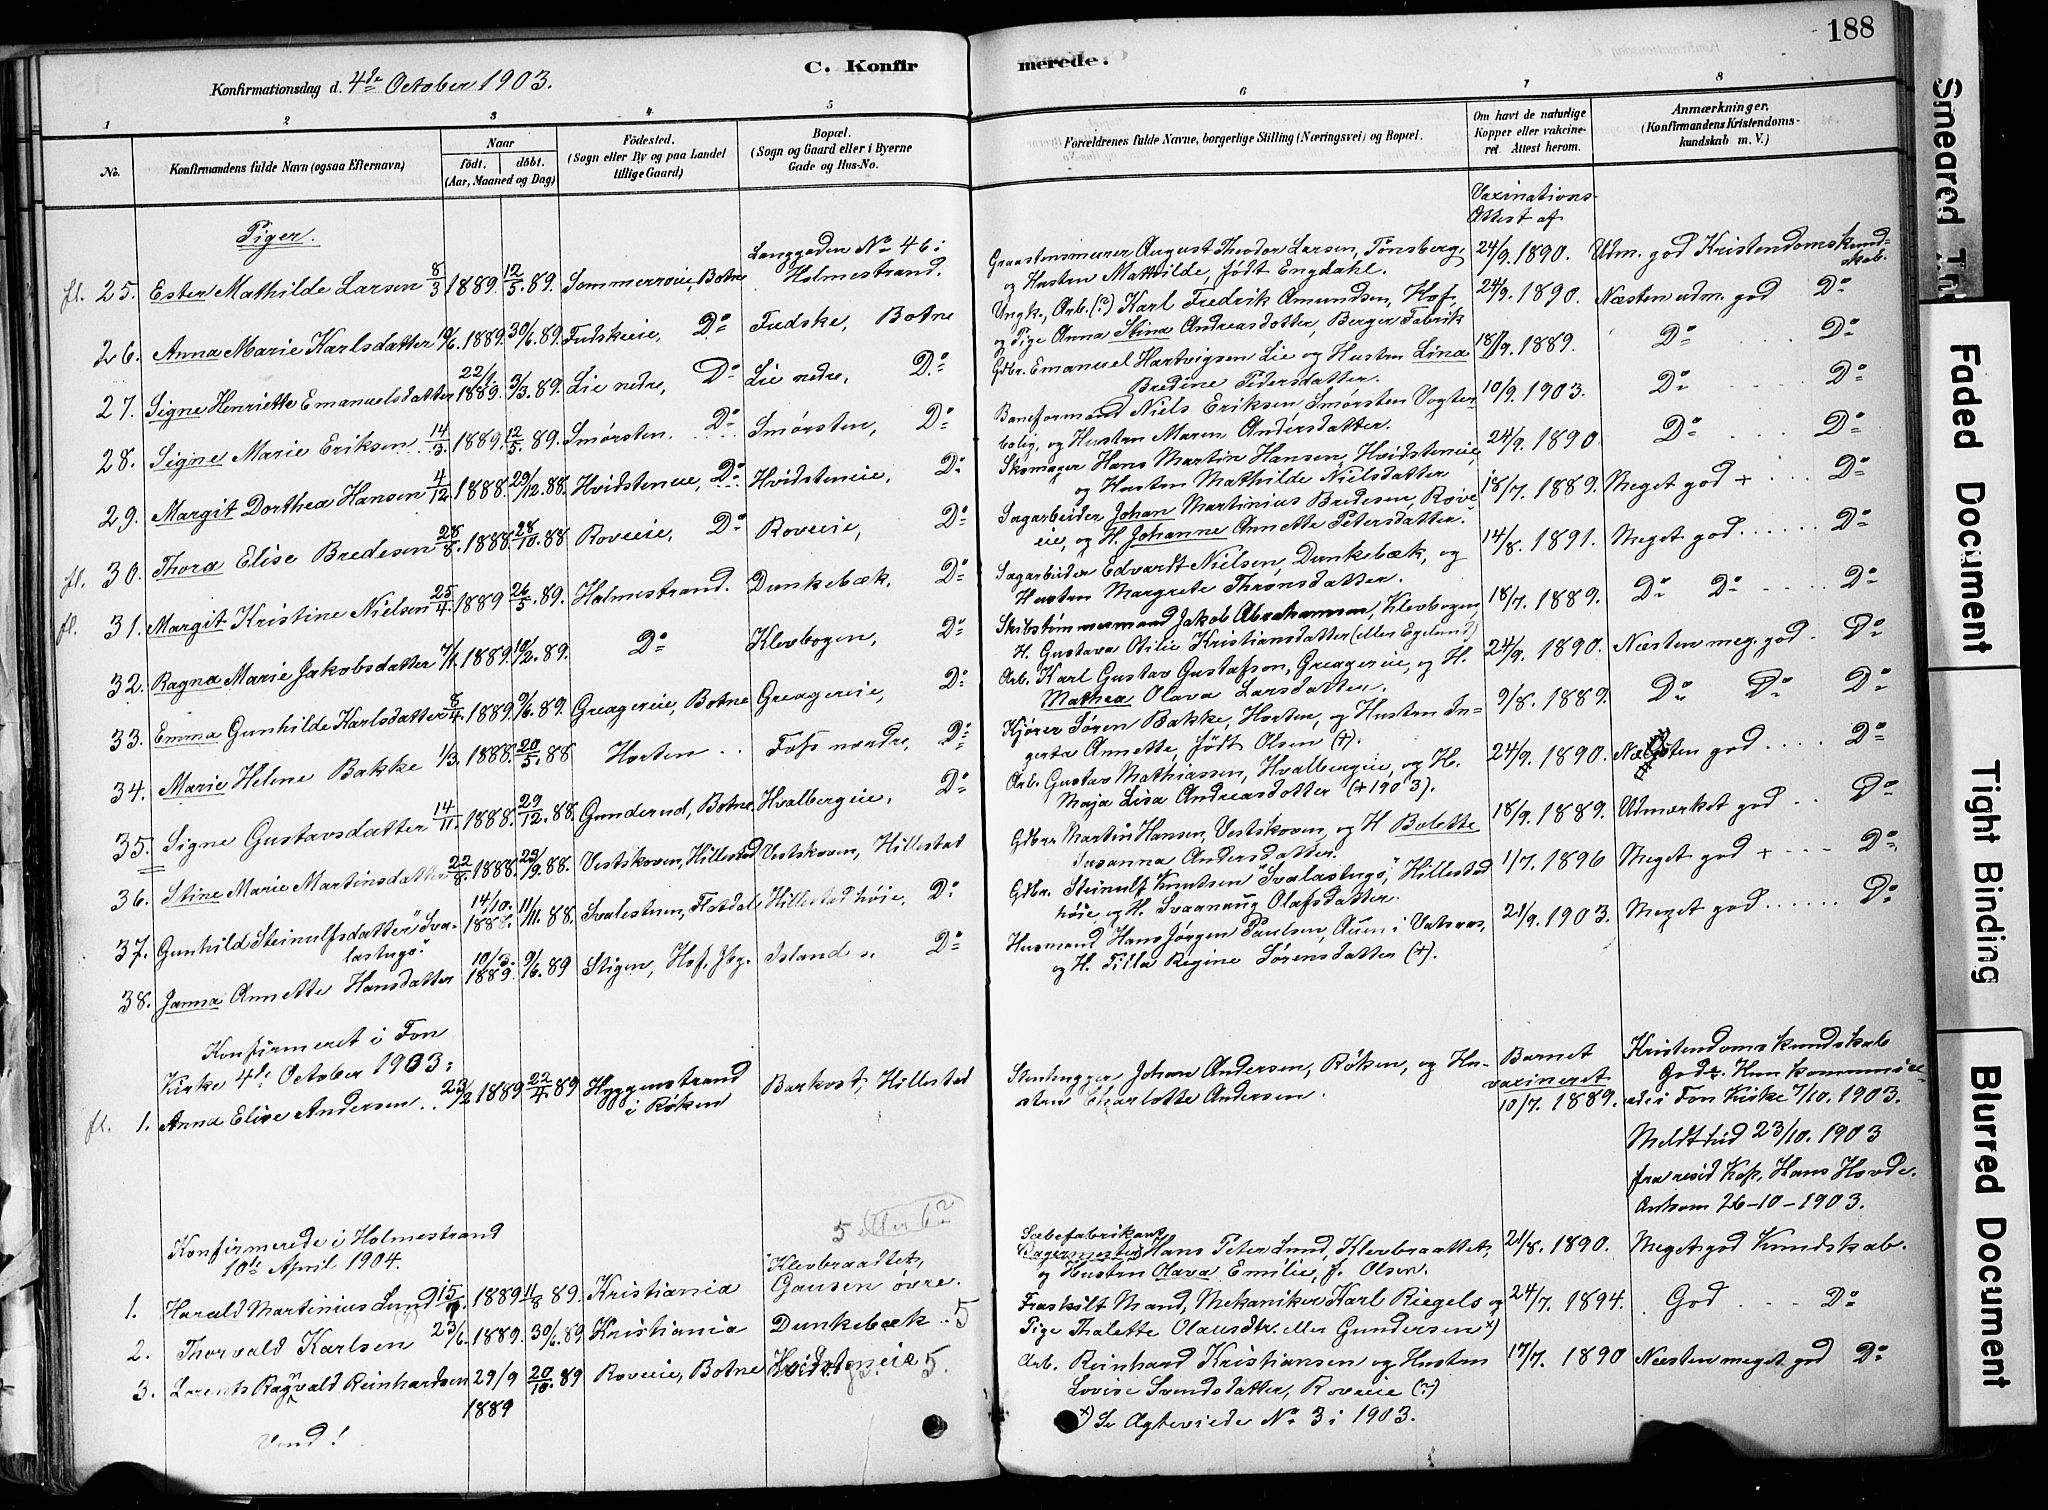 188
C. Konfirmerede.
Konfirmationsdag d. 4de October 1903.
1 2 3 4 5 6 7 8
No.
Konfirmandens fulde Navn (ogsaa Efternavn)
Naar
født. døbt.
(Aar, Maaned og Dag)
Fødested.
(Sogn eller By og paa Landet
tillige Gaard)
Bopæl.
(Sogn og Gaard eller i Byerne
Gade og Hus-No.
Forældrenes fulde Navne, borgerlige Stilling (Næringsvei) og Bopæl.
Om havt de naturlige
Kopper eller vakcine-
ret. Attest herom.
Anmærkninger,
(Konfirmandens Kristendoms-
kundskab m. V.)
Vaxinations-
Attest af
Piger.
fl. 25. Ester Mathilde Larsen 8/3 1889. 12/5. 89. Sommerroeie, Botne Langgaden No 46 i
Holmestrand.
Graastensmurer August Theodor Larsen, Tønsberg,
og Hustru Mathilde, født Engdahl.
24/9. 1890. Udm. god Kristendomskund-
skab.
26. Anna Marie Karlsdatter 1889. 30/6. 89. Fudskeie, Do Fudske, Botne
Ungk., Arb. (?) Karl Fredrik Amundsen, Hof,
og Pige Anna Stina Andreasdotter, Berger Fabrik
24/9. 1890. Næsten udm. god Do
27. Signe Henriette Emanuelsdatter 22/1 1889. 3/3. 89. Lie nedre, Do Lie nedre, Do
Gdbr. Emanuel Hartvigsen Lie og Hustru Lina
Bredine Pedersdatter.
18/9. 1889. Do Do
28. Signe Marie Eriksen 14/3 1889. 12/5. 89. Smørsten. Do Smørsten, Do
Baneformand Niels Eriksen Smørsten Vogter-
bolig, og Hustru Maren Andersdatter.
10/9. 1903. Do Do
29. Margit Dorthea Hansen 4/12 1888. 29/12. 88. Hvidsteneie, Do Hvidsteneie, Do
Skomager Hans Martin Hansen, Hvidsteneie,
og Hustru Mathilde Nielsdatter
24/9. 1890 Do Do
fl. 30. Thora Elise Bredesen 28/8. 1888. 28/10. 88 Roveeie, Do Roveeie, Do
Sagarbeider Johan Martinius Bredesen, Rove-
eie, og H. Johanne Annette Petersdatter.
18/7. 1889. Meget god + Do
fl. 31. Margit Kristine Nielsen 25/4 1889 26/5. 89. Holmestrand. Dunkebæk, Do
Sagarbeider Edvardt Nielsen, Dunkebæk, og
Hustru Margrete Thronsdatter.
14/8. 1891. Meget god Do
32. Ragna Marie Jakobsdatter 7/1. 1889. 10/2. 89. Do Klevbogen, Do
Skibstømmermand Jakob Abrahamsen, Klevbogen,
H. Gustava Otilie Kristiansdatter (eller Egelund)
18/7. 1889. Do Do Do
33. Emma Gunhilde Karlsdatter 8/4. 1889. 9/6. 89. Greagereie, Botne Greagereie, Do
Arb. Karl Gustav Gustafson, Greagereie, og H.
Mathea Olava Larsdatter.
24/9. 1890. Næsten meg. god. Do
34. Marie Helene Bakke 1/3. 1888. 20/5. 88 Horten Foss nordre, Do
Kjører Søren Bakke, Horten, og Hustru In-
gerta Annette, født Olsen (+).
9/8. 1889. Do Do Do
35. Signe Gustavsdatter 14/11. 1888. 29/12. 88. Gunderud, Botne. Hvalbergeie, Do
Arb. Gustav Mathiassen, Hvalbergeie, og H.
Maja Lisa Andreasdotter (+ 1903).
24/9. 1890. Næsten god Do
36. Stine Marie Martinsdatter 22/8. 1888. 23/9. 88. Vestskoven, Hillestad Vestskoven, Hillestad
Gdbr. Martin Hansen, Vestskoven, og H. Bolette
Susanna Andersdatter.
18/9. 1889. Udmærket god Do
37. Gunhild Steinulfsdatter "Sva-
lastugø". 14/10. 1888. 11/11. 88. Svalestuen, Flatdal Hillestad høie, Do
Gdbr. Steinulf Knutsen "Svalastugø", Hillestad
høie, og H. Svaanaug Olafsdatter.
1/7. 1896 Meget god + Do
38. Janna Annette Hansdatter 10/3. 1889. 9/6. 89 Stigen, Hof. Jbg. Island Do
Husmand Hans Jørgen Paulsen, Auen i Vataas,
og H. Tilla Regine Sørensdatter (+).
21/9. 1903. Meget god Do
Konfirmeret i Fon
Kirke 4de October 1903:
fl. 1. Anna Elise Andersen 23/2 1889 22/4 89 Hyggenstrand
i Røken Barkost, Hillestad
Stenhugger Johan Andersen, Røken, og Hu-
stru Charlotte Andersen.
Barnet
vaxineret
10/7. 1889.
Kristendoms kundskab
God. Hun kommunice-
rede i Fon Kirke 7/10. 1903.
Meldt hid 23/10. 1903
fra resid Kap, Hans Hovde.
Ankom 26-10-1903.
Konfirmerede i Holmestrand
10de April 1904.
5 eller 6?
1. Harald Martinius Lund 15/ 1889 11/8 89. Kristiania Klevbraadtet,
Gausen øvre.
Sæbefabrikant
Bagermester Hans Peter Lund, Klevbraattet,
og Hustru Olava Emilie, f. Olsen.
21/8. 1890. Meget god Kundskab.
2. Thorvald Karlsen 23/6. 1889. 30/6. 89 Kristiania Dunkebæk 5
Fraskilt Mand, Mekaniker Karl Riegels og
Pige Thalette Olausdtr. eller Gundersen x)
24/7. 1894. God Do
3. Lorents Ragnvald Reinhardsen 29/9 1889 20/10. 89 Roveeie, Botne Hvidsteneie 5.
Arb. Reinhard Kristiansen og Hustru
Lovise Svendsdatter, Roveeie (?)
17/7. 1890 Næsten meget god Do
x) Se Ægteviede No 3 i 1903.
Vend!
Smeared
Faded Document
Tight Binding
Blurred Document